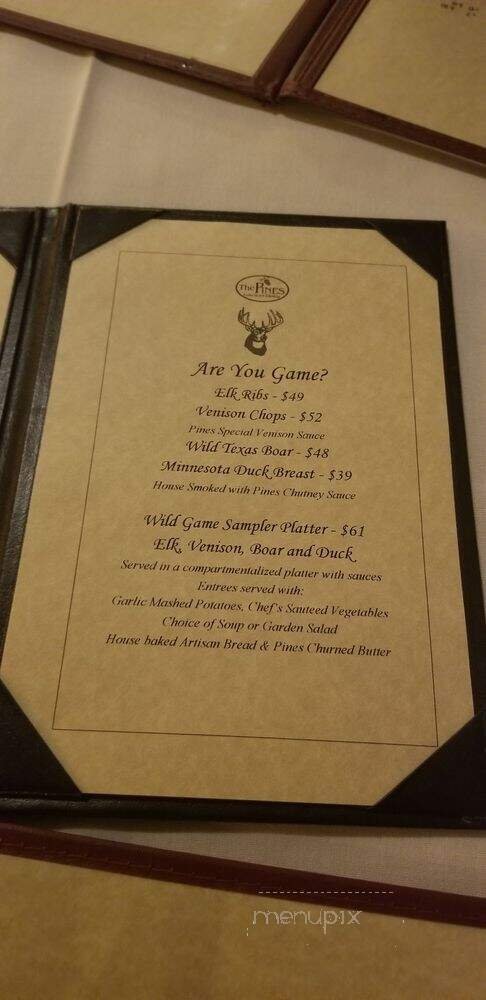 The PINES
Are You Game?
Elk Ribs - $49
Venison Chops - $52
Pines Special Venison Sauce
Wild Texas Boar - $48
Minnesota Duck Breast - $39
House Smoked with Pines Chutney Sauce
Wild Game Sampler Platter - $61
Elk, Venison, Boar and Duck
Served in a compartmentalized platter with sauces
Entrees served with:
Garlic Mashed Potatoes, Chef's Sauteed Vegetables
Choice of Soup or Garden Salad
House baked Artisan Bread & Pines Churned Butter
menupix